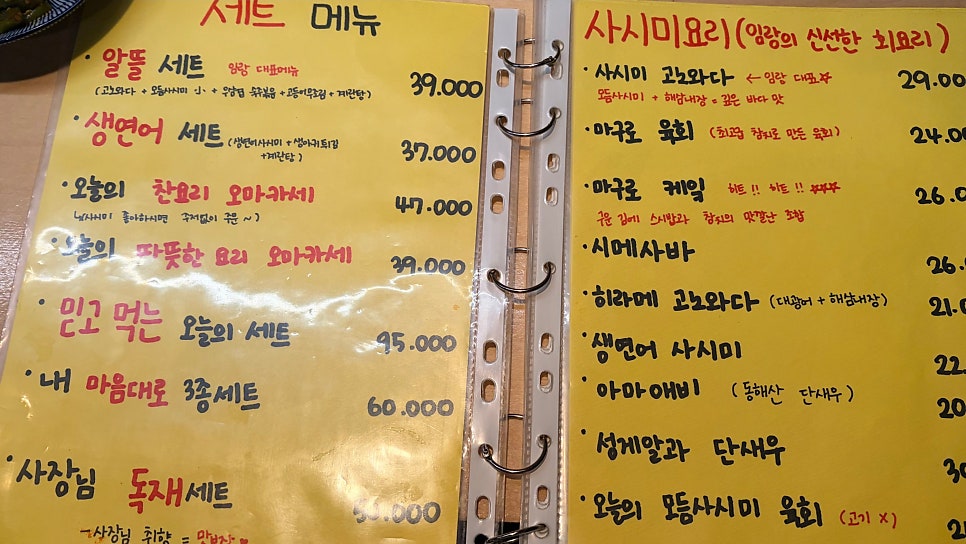 세트 메뉴
· 알뜰 세트 임랑 대표메뉴 39.000
· 생연어 세트 37.000
+계란탕)
· 오늘의 찬요리 오마카세 47.000
· 오늘의 따뜻한 요리 오마카세 39.000
· 믿고 먹는 오늘의 세트 95.000
· 내 마음대로 3종세트 60.000
· 사장님 독재세트
사장님 취향 =
사시미요리 (임랑의 신선한 회요리)
· 사시미 고노와다 ← 임랑 대표 29.00
모듬사시미 + 해삼내장 = 깊은 바다 맛
· 마구로 육회 (최고급 참치로 만든 육회) 24.00
· 마구로 케잌 히트!! 히트!! 26.0
구운 김에 스시밥과 참치의 맛깔난 조합
· 시메사바 26.
· 히라메 고노와다 (대광어 + 해삼내장) 21.0
· 생연어 사시미 22
· 아마애비 (동해산 단새우) 20
· 성게알과 단새우 30
· 오늘의 모듬사시미 육회 (고기 X)